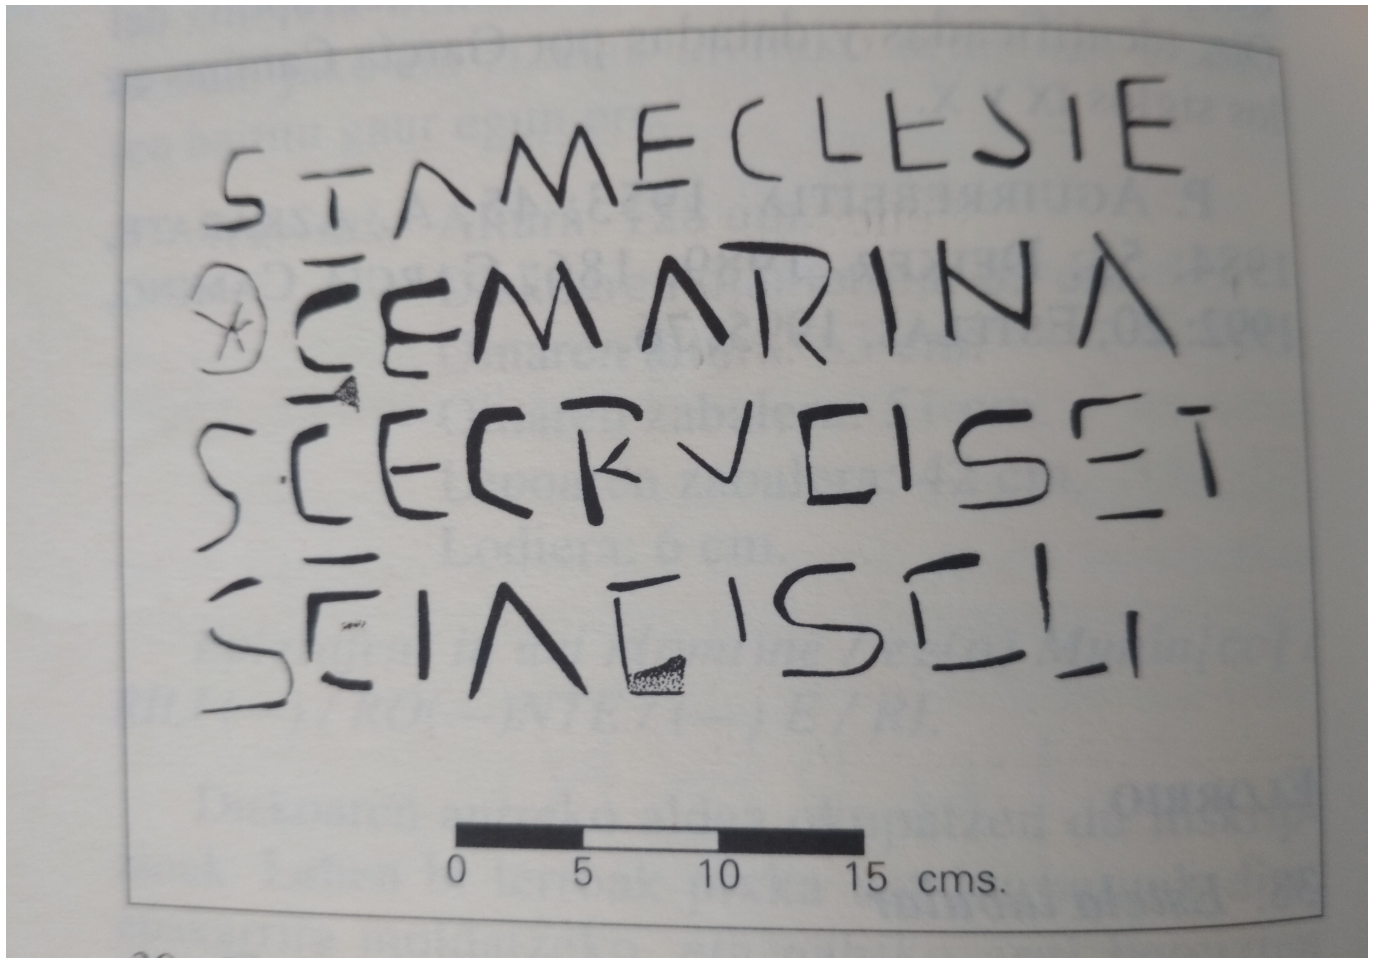 STAMECLESIE
CEMARINA
SCECRVCISET
SCIACISCLI
0 5 10 15 cms.